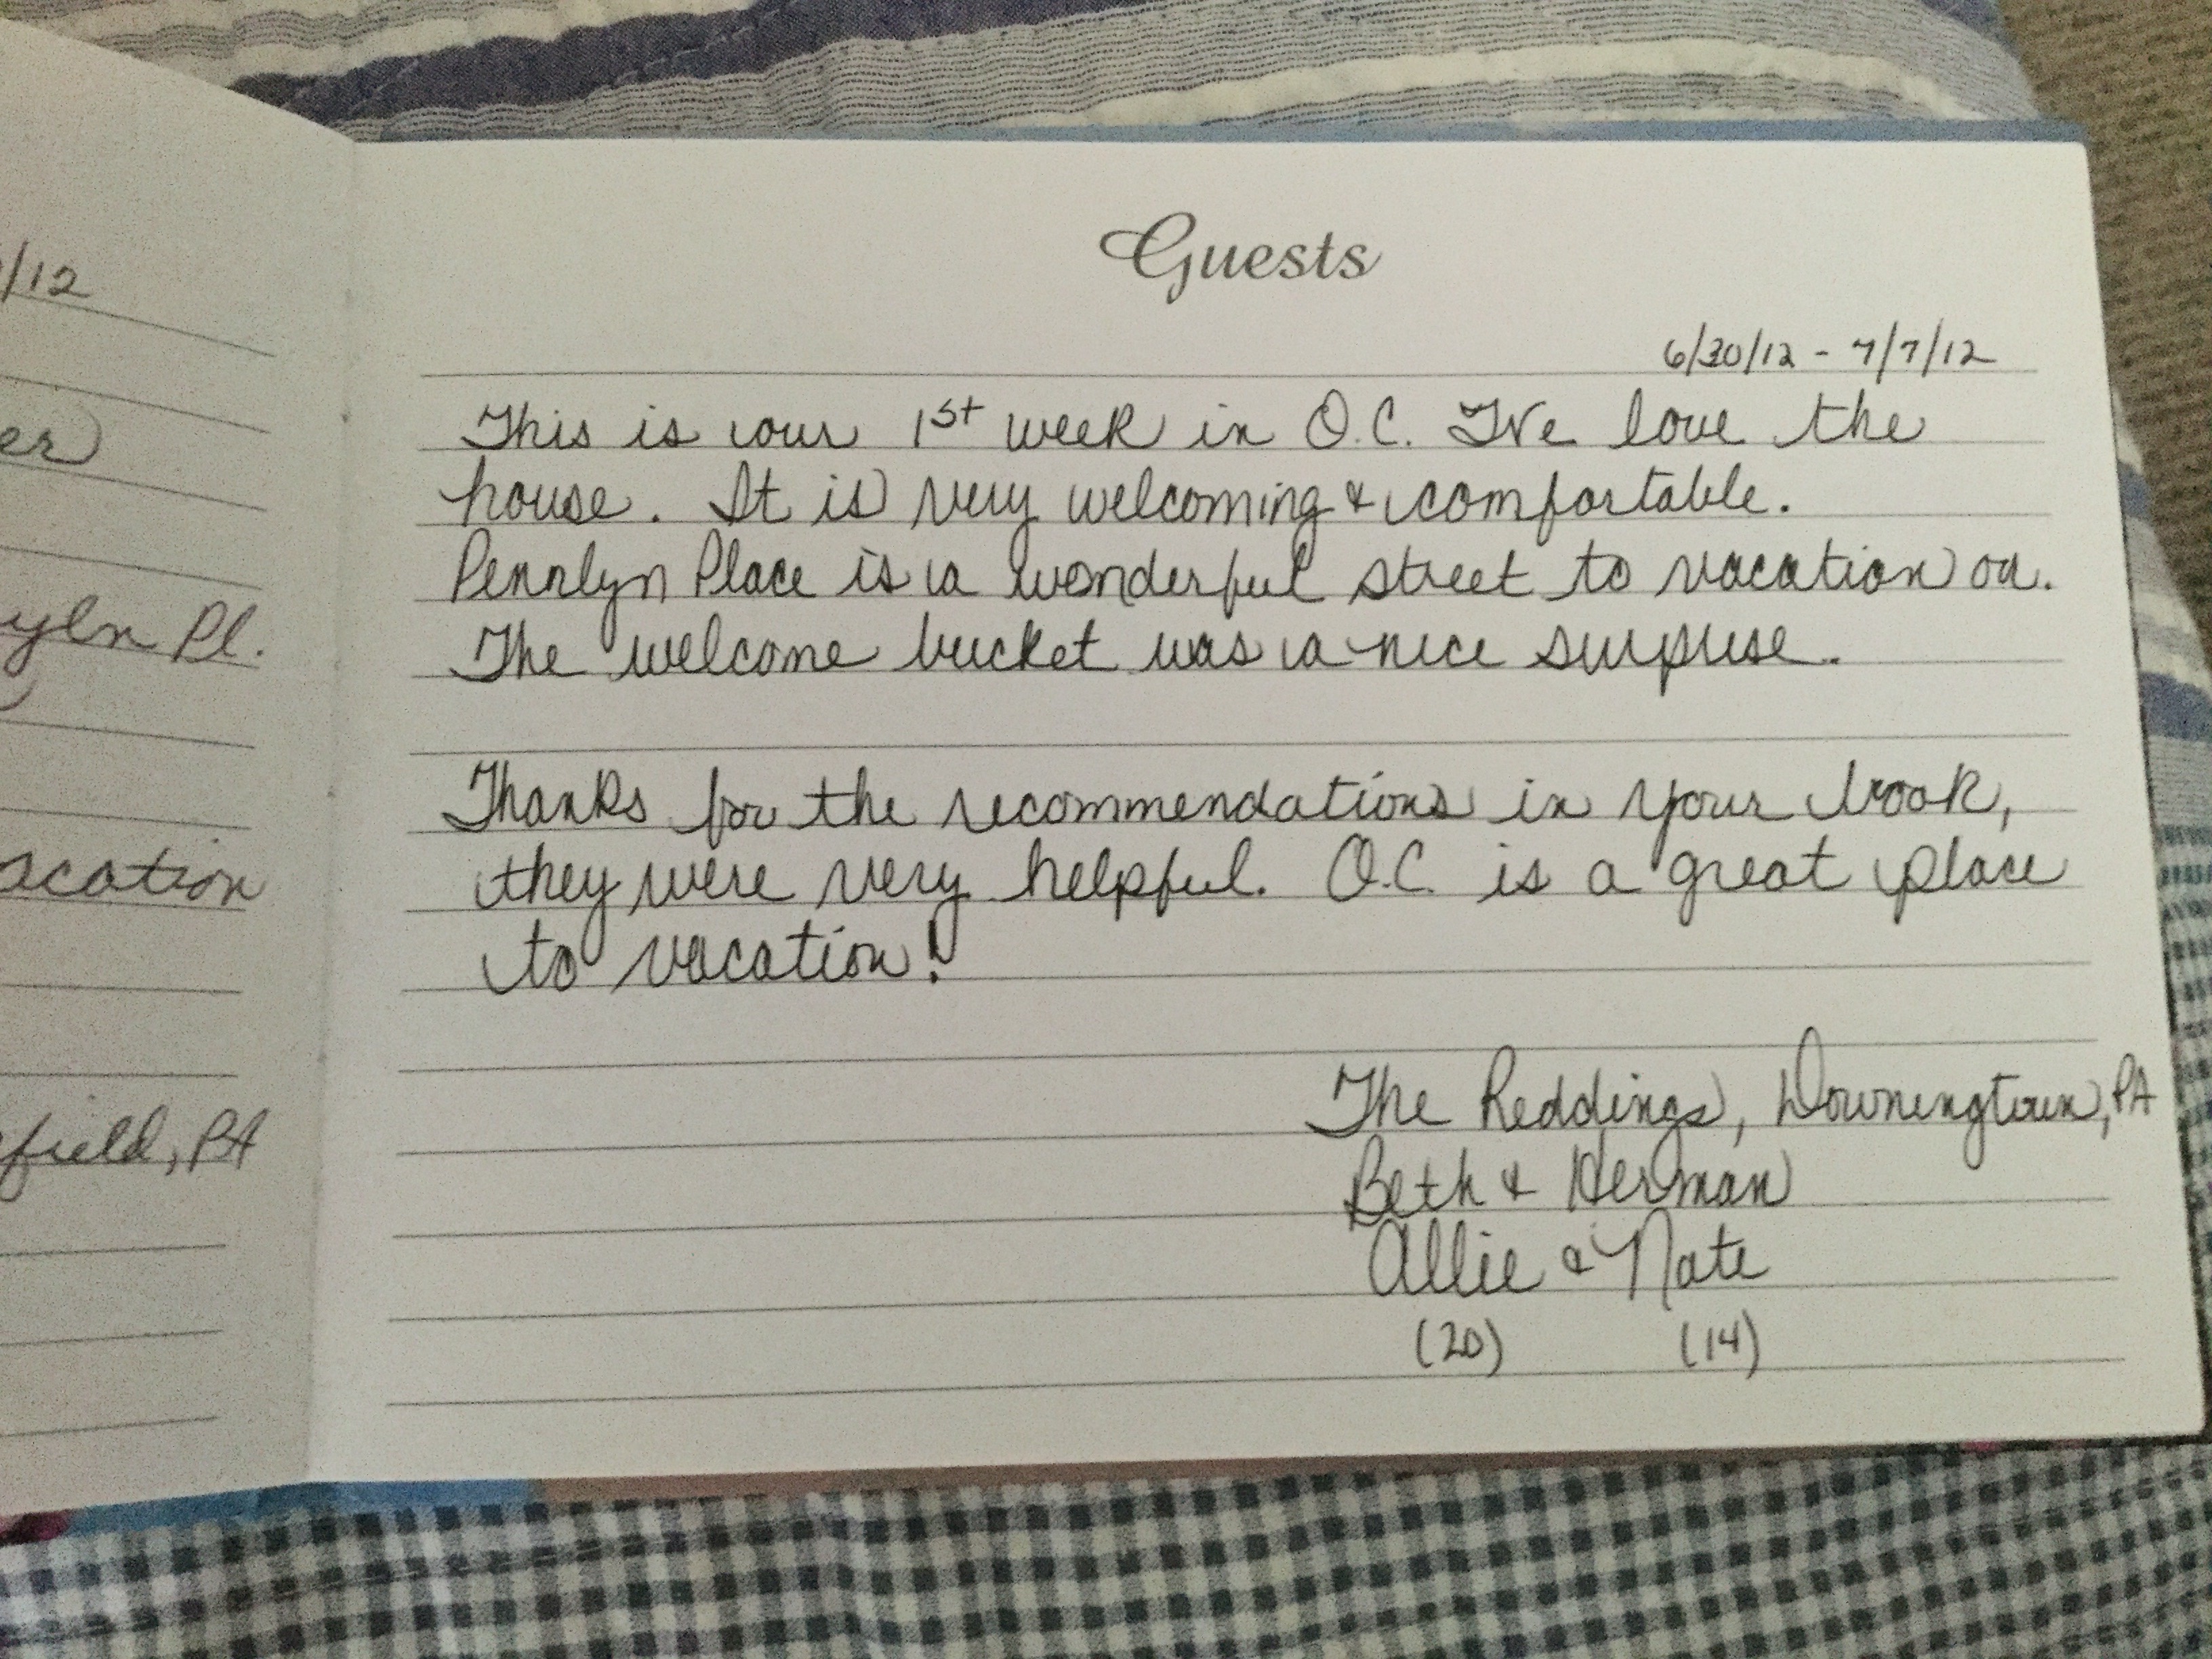 /12
er
yln Pl.
acation
field, PA
Guests
6/30/12 - 7/7/12
This is our 1st week in O.C. We love the
house. It is very welcoming & comfortable.
Pennlyn Place is a wonderful street to vacation on.
The welcome bucket was a nice surprise.
Thanks for the recommendations in your book,
they were very helpful. O.C. is a great place
to vacation!
The Reddings, Downingtown, PA
Beth & Herman
Allie & Nate
(20) (14)